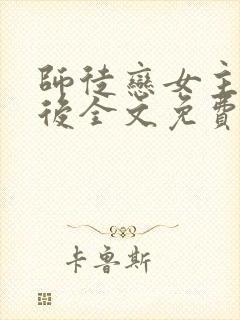 師徒戀女主
後全文免費
卡魯斯